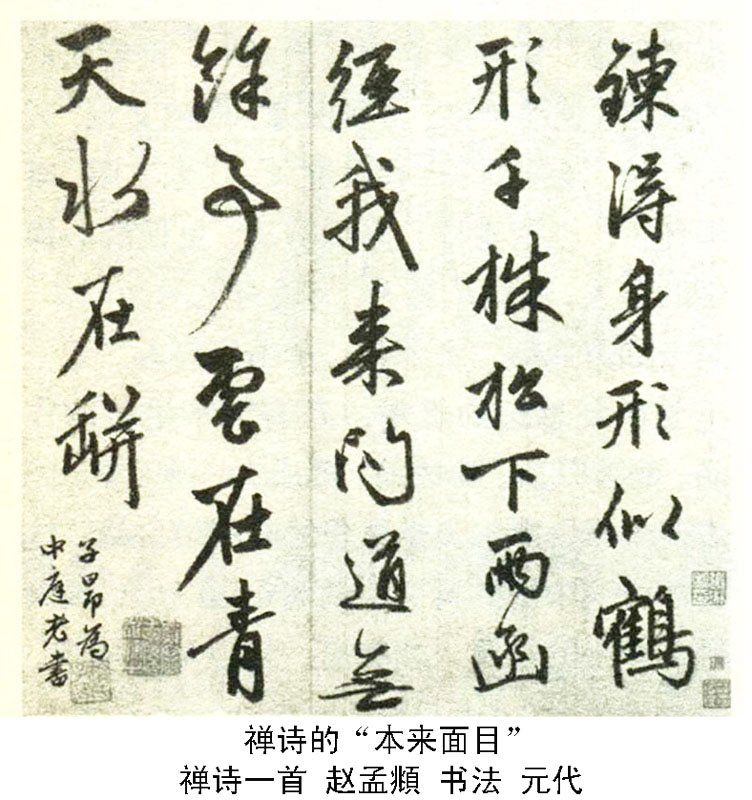 鍊得身形似鶴
形千株松下兩函
經我来問道無
餘事雲在青
天水在缾
子昂為
中庭老書
禅诗的“本来面目”
禅诗一首 赵孟頫 书法 元代